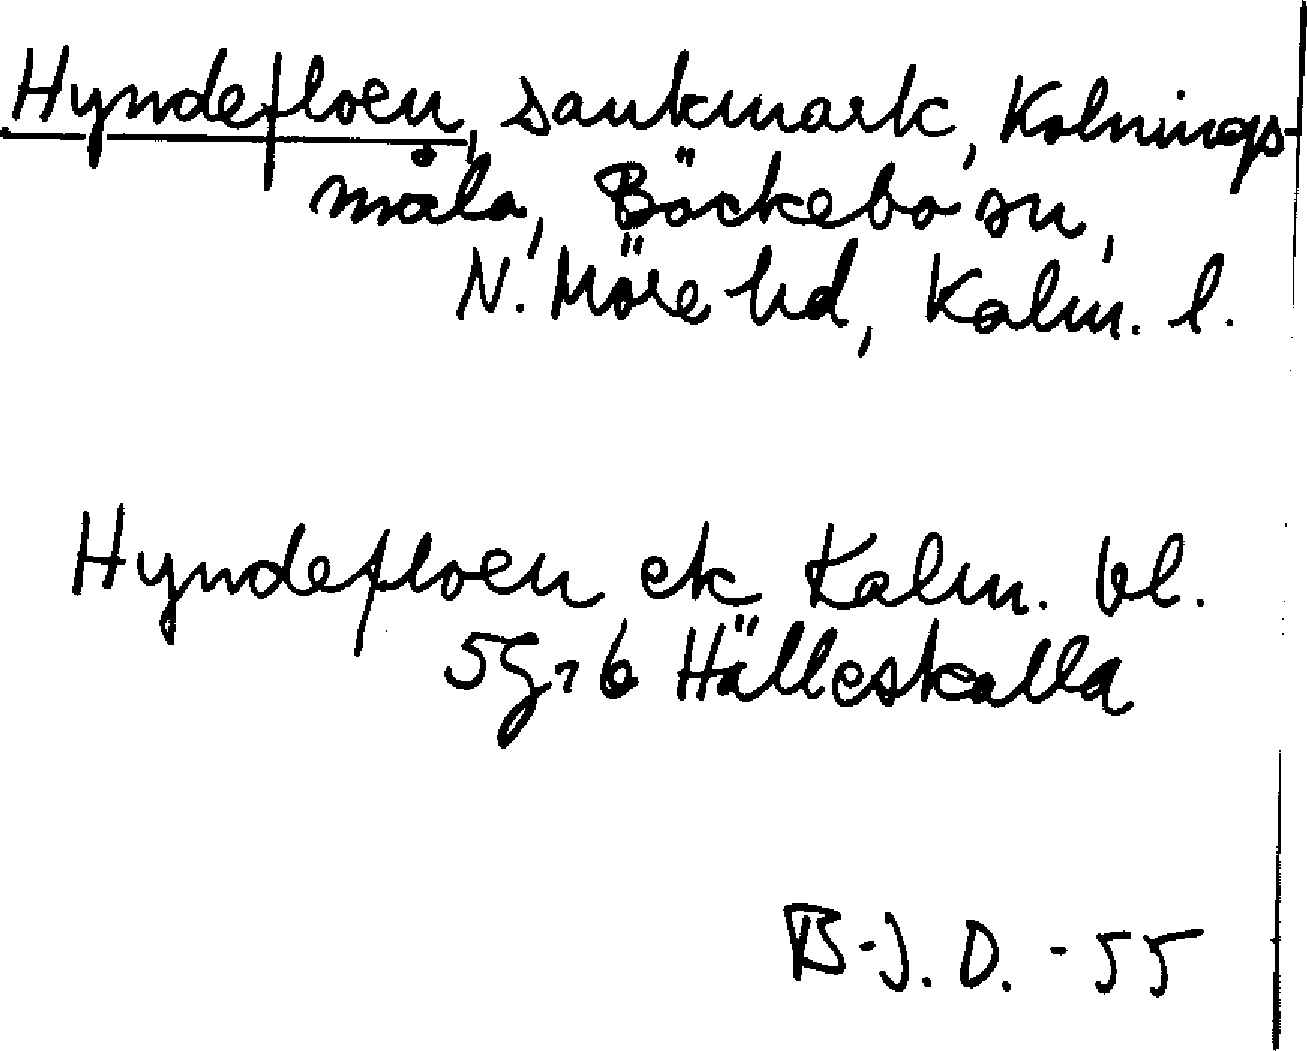 Hyndefloen, sankmark, Kolnings-
måla, Böckebo sn,
N. Möre hd, Kalm. l.
Hyndefloen ek Kalm. bl.
5G, b Hälleskalla
B-J. D. -55